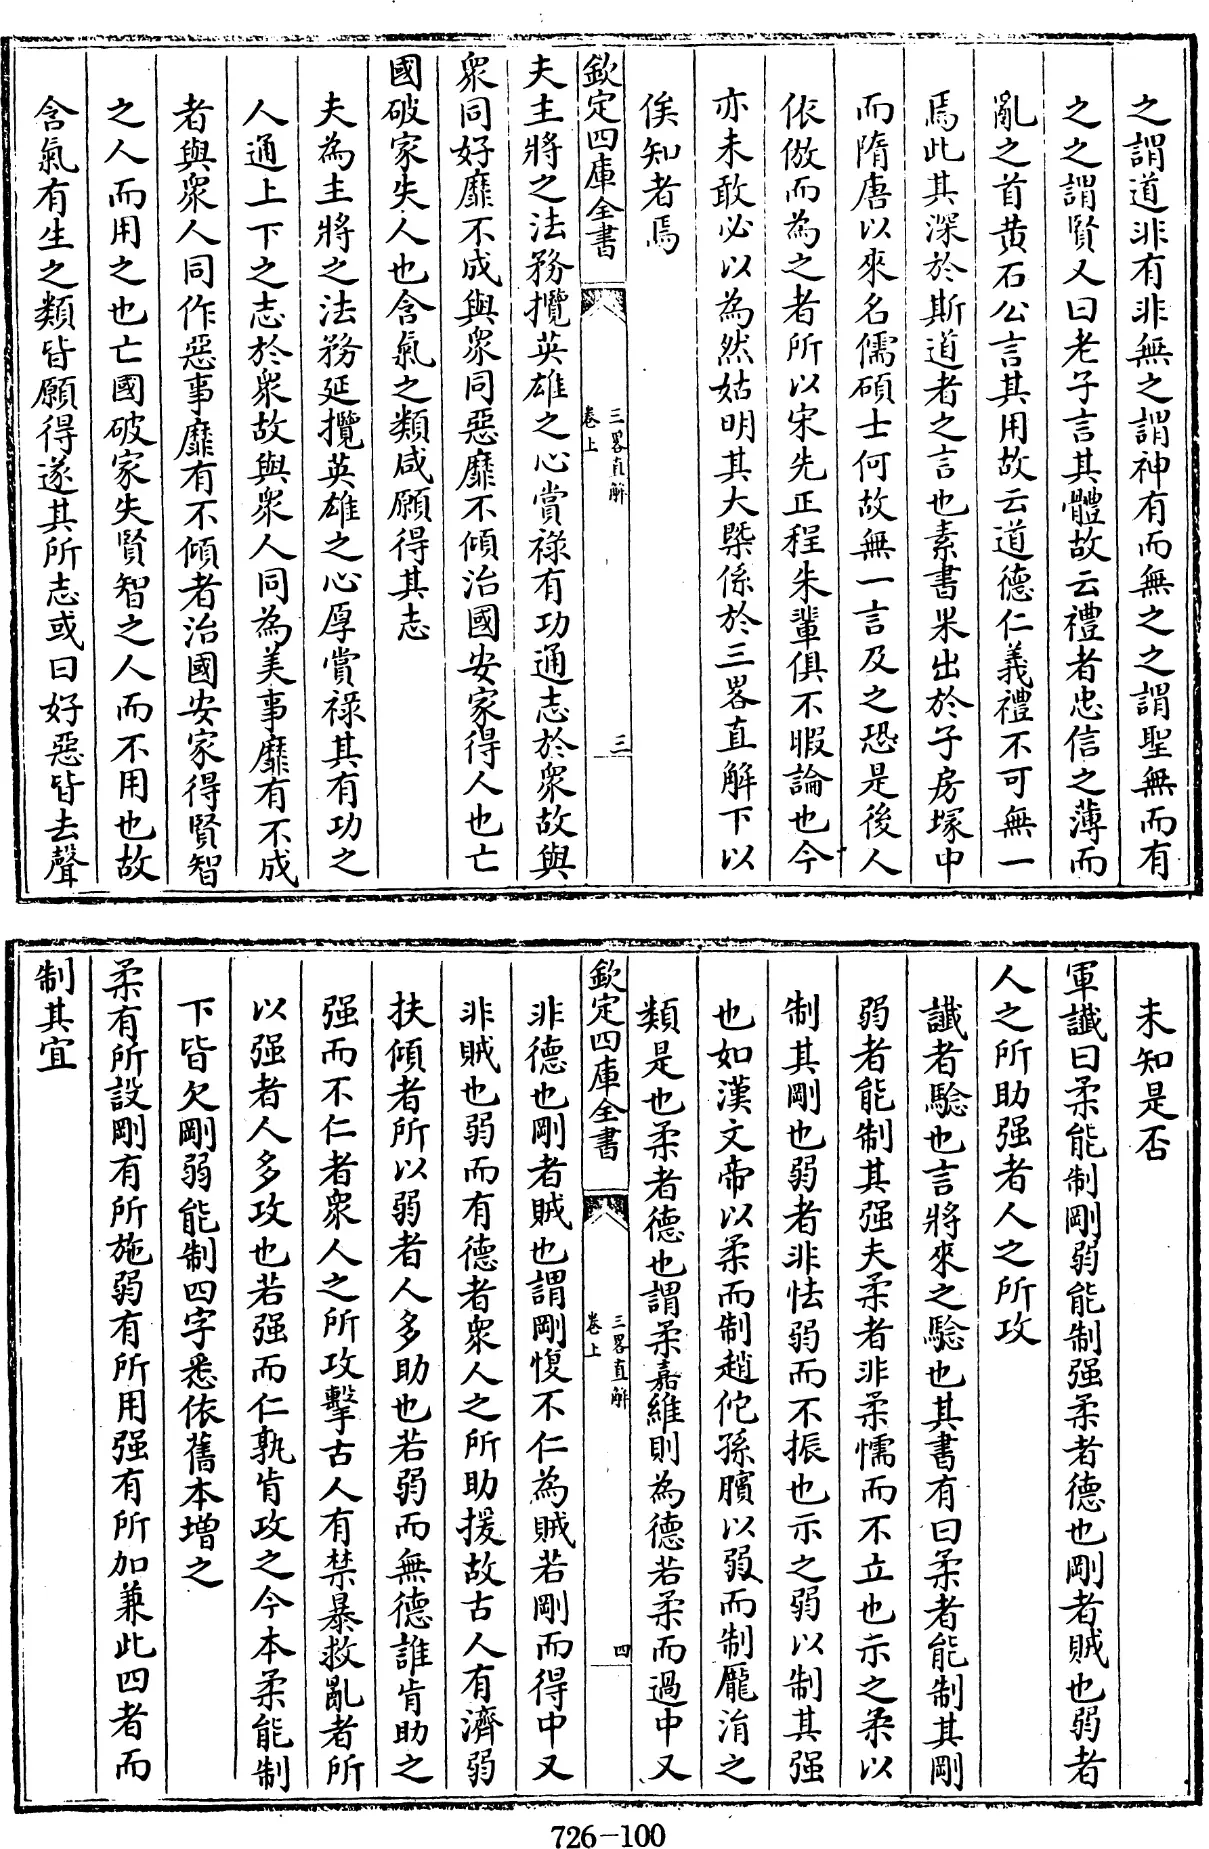 之謂道非有非無之謂神有而無之之謂聖無而有
之之謂賢又曰老子言其體故云禮者忠信之薄而
亂之首黄石公言其用故云道德仁義禮不可無一
焉此其深於斯道者之言也素書果出於子房塚中
而隋唐以來名儒碩士何故無一言及之恐是後人
依倣而為之者所以宋先正程朱輩俱不暇論也今
亦未敢必以為然姑明其大槩係於三畧直解下以
俟知者焉
欽定四庫全書
三畧直解
卷上
三
夫主將之法務攬英雄之心賞祿有功通志於衆故與
衆同好靡不成與衆同惡靡不傾治國安家得人也亡
國破家失人也含氣之類咸願得其志
夫為主將之法務延攬英雄之心厚賞祿其有功之
人通上下之志於衆故與衆人同為美事靡有不成
者與衆人同作惡事靡有不傾者治國安家得賢智
之人而用之也亡國破家失賢智之人而不用也故
含氣有生之類皆願得遂其所志或曰好惡皆去聲
未知是否
軍讖曰柔能制剛弱能制强柔者德也剛者賊也弱者
人之所助强者人之所攻
讖者驗也言將來之驗也其書有曰柔者能制其剛
弱者能制其强夫柔者非柔懦而不立也示之柔以
制其剛也弱者非怯弱而不振也示之弱以制其强
也如漢文帝以柔而制趙佗孫臏以弱而制龐涓之
類是也柔者德也謂柔嘉維則為德若柔而過中又
欽定四庫全書
三畧直解
卷上
四
非德也剛者賊也謂剛愎不仁為賊若剛而得中又
非賊也弱而有德者衆人之所助援故古人有濟弱
扶傾者所以弱者人多助也若弱而無德誰肯助之
强而不仁者衆人之所攻擊古人有禁暴救亂者所
以强者人多攻也若强而仁孰肯攻之今本柔能制
下皆欠剛弱能制四字悉依舊本增之
柔有所設剛有所施弱有所用强有所加兼此四者而
制其宜
726-100